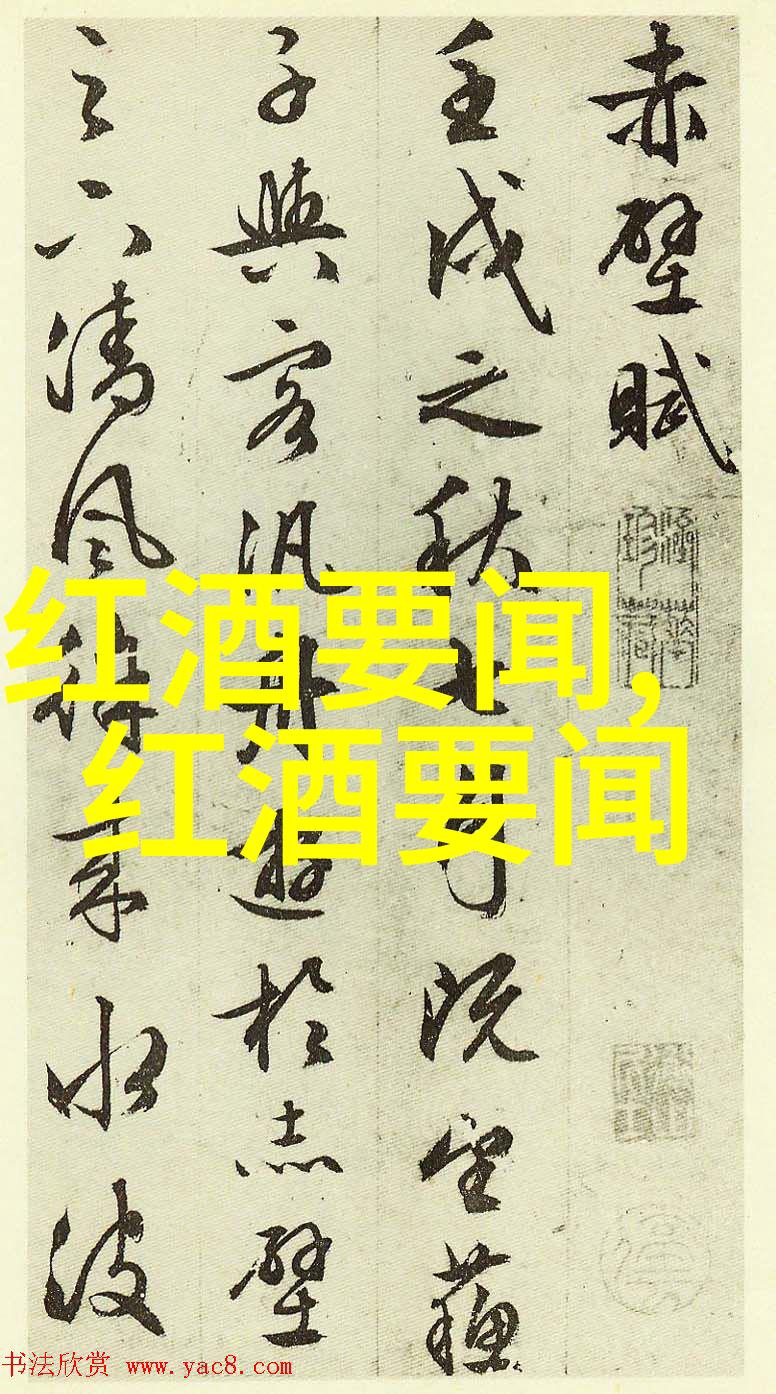 赤壁賦
壬戌之秋七月既望蘇
子與客汎舟遊於赤壁
之下清風徐來水波
红酒要闻,
红酒要闻
书法欣赏 www.yac8.com